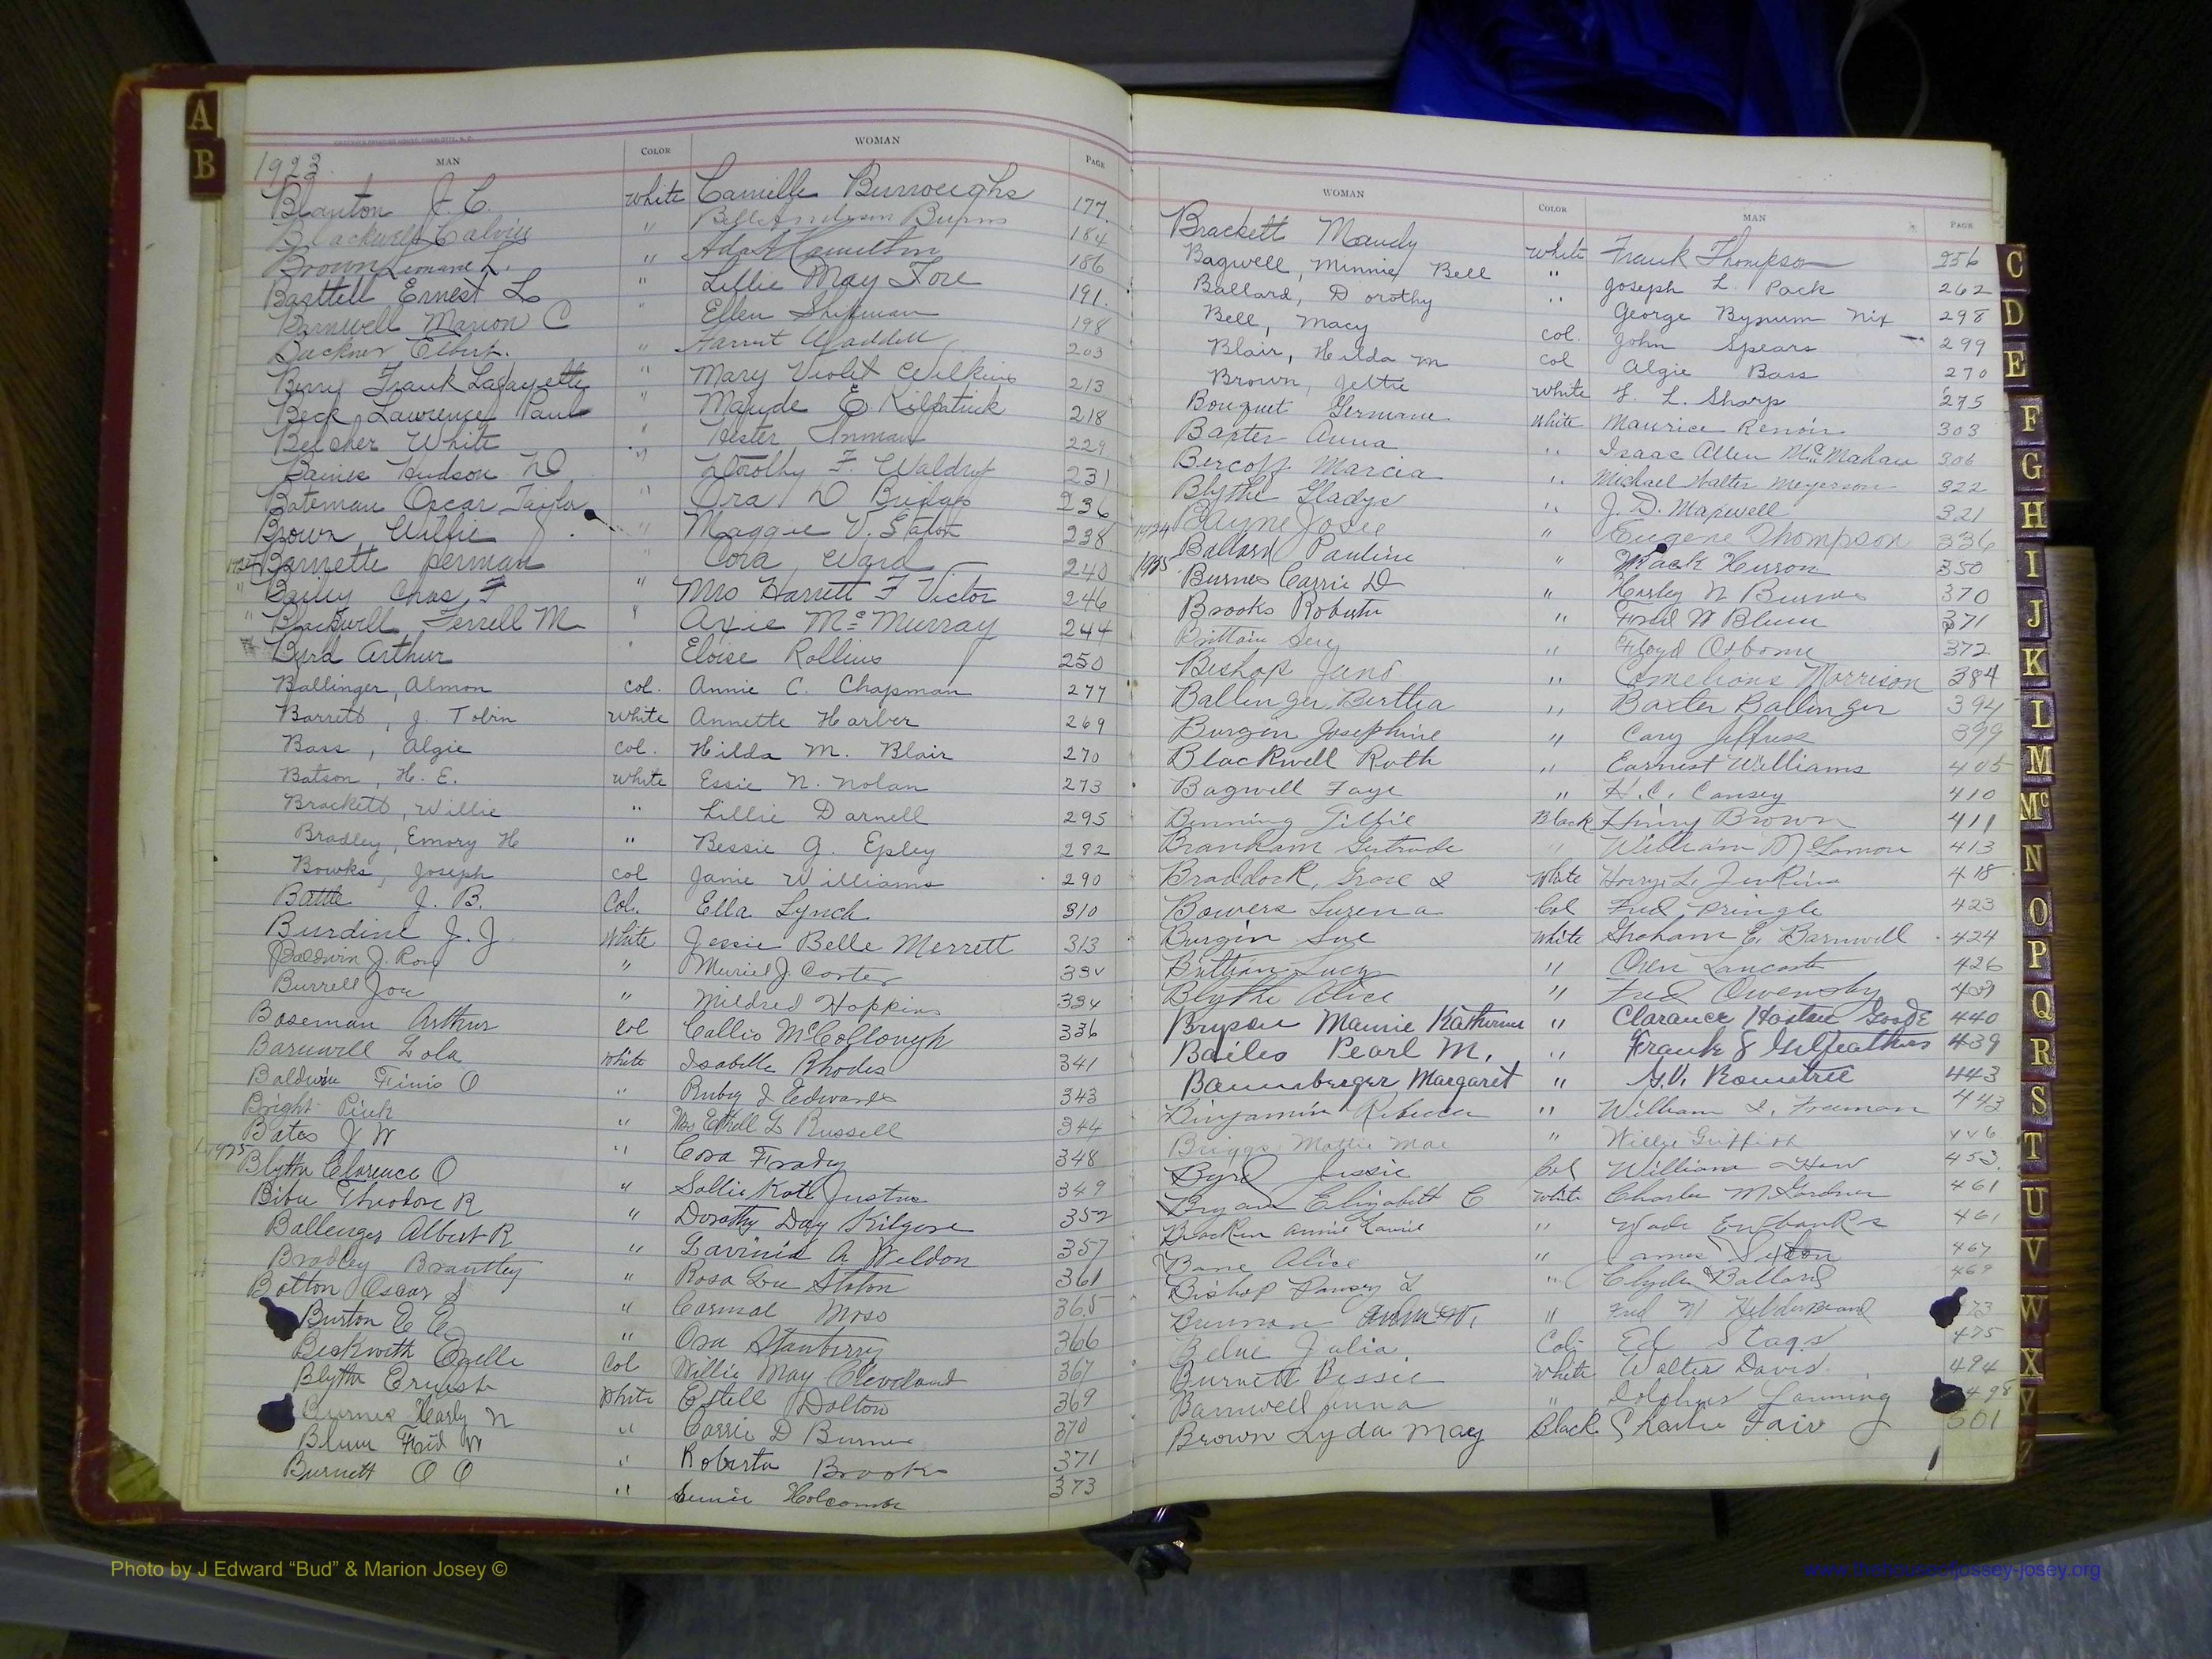 A
B
MAN COLOR WOMAN PAGE
1923
Blanton J. C. white Camille Burroughs 177
Blackwell Calvin " Belle Anderson Burns 184
Brown L. " Ada Hamilton 186
Ernest L " Lillie May Fore 191
Barnwell Marion C " Ellen Shipman 198
Buckner Elbert. " 203
Berry Frank Lafayette " Mary Violet Wilkins 213
Beck Lawrence Paul " Maude E. Kilpatrick 218
Belcher White " Hester Inman 229
Baines Hudson D " Dorothy F. Waldrop 231
Bateman Oscar Taylor " Ora D Bridges 236
Brown Willie " Maggie V. Staton 238
1924 Barnette Herman " Cora Ward 240
" Bailey Chas F " Mrs Harrett F Victor 246
" Blackwell Ferrell M " Axie McMurray 244
Byrd Arthur " Eloise Rollins 250
Ballinger, Almon col. Annie C. Chapman 277
Barrett, J. Tobin White Annette Harber 269
Bass, Algie col. Hilda M. Blair 270
Batson, H. E. white Essie N. Nolan 273
Brackett, Willie " Lillie Darnell 295
Bradley, Emory H " Bessie G. Epley 282
Bowks, Joseph col Janie Williams 290
Battle J. B. Col. Ella Lynch 310
Burdine J. J. White Jessie Belle Merrett 313
Baldwin J. Roy " Muriel J. Carter 334
Burrell Joe " Mildred Hopkins 334
Boseman Arthur col Callie McCollough 336
Barnwell Lola white Isabelle Rhodes 341
Baldwin Finis O " Ruby I Edwards 343
Bright Pink " Mrs Ethell L Russell 344
Bates J W " Cora Frady 348
1925 Blythe Clarence O " Sallie Kate Justus 349
Theodore R " Dorothy Day Kilgore 352
Ballenger Albert R " Lavinia A Weldon 357
Bradley Brantley " Rosa Lou Staton 361
Botton Oscar S " Carmal Moss 365
Burton E E " Ora Stanberry 366
Beckwith Ozelle Col Willie May Cleveland 367
Blythe Ernest White Estell Dalton 369
Burnes Harly N " Carrie D Burnes 370
Blum Fred W " Roberta Brooks 371
Burnett O O " Holcombe 373
WOMAN COLOR MAN PAGE
Brackett Maudy white Frank Thompson 256
Bagwell, Minnie Bell " Joseph L. Pack 262
Ballard, Dorothy " George Bynum Nix 298
Bell, Macy col. John Spears 299
Blair, Hilda M col Algie Bass 270
Brown, Jettie White F. L. Sharp 275
Bouquet Germane White Maurice Renoir 303
Baxter Anna " Isaac Allen McMahan 306
Bercoff Marcia " Michael Walter Meyerson 322
Blythe Gladys " J. D. Maxwell 321
1924 Payne Josee " Eugene Thompson 336
1925 Ballard Pauline " Mack Herron 350
Burnes Carrie D " Harley N Burnes 370
Brooks Roberta " Fred W Blum 371
Brittain " Floyd Osborne 372
Bishop June " Morrison 384
Ballenger Bertha " Baxter Ballenger 394
Burgin Josephine " Cary Jeffress 399
Blackwell Ruth " Earnest Williams 405
Bagwell Faye " H. C. Cansey 410
Benning Tilfie Black Henry Brown 411
Branham Gertrude " William McLamore 413
Braddock, Grace E White Harry L. Jenkins 418
Bowers Lurena Col Fred Pringle 423
Burgin Sue White Graham E. Barnwell 424
Brittian Lucy " Oren Lancaster 426
Blythe Alice " Fred Owensby 409
Bryson Mamie Katherine " Clarance Goode 440
Bailes Pearl M. " Frank S Gilfeathers 439
Bamberger Margaret " G.V. Rowntree 443
Benjamin Rebecca " William I. Freeman 443
Briggs Mattie Mae " Willie Griffith 446
Byrd Jessie Col William 453.
Bryan Elizabeth C White Charles McGardner 461
Bracken Annie Laurie " Wade Eubanks 461
Bane Alice " James Sexton 467
Bishop Pansey L " Clyde Ballard 469
" Fred N Hilderbrand 473
Belue Julia. Col. Ed Stags 475
Burnett Bessie White Walter Davis 494
Barnwell Anna " Dolphus Lanning 498
Brown Lyda May Black Charlie Fair 501
C
D
E
F
G
H
I
J
K
L
M
Mc
N
O
P
Q
R
S
T
U
V
W
X
Y
Z
Photo by J Edward “Bud” & Marion Josey ©
www.thehouseofjossey-josey.org